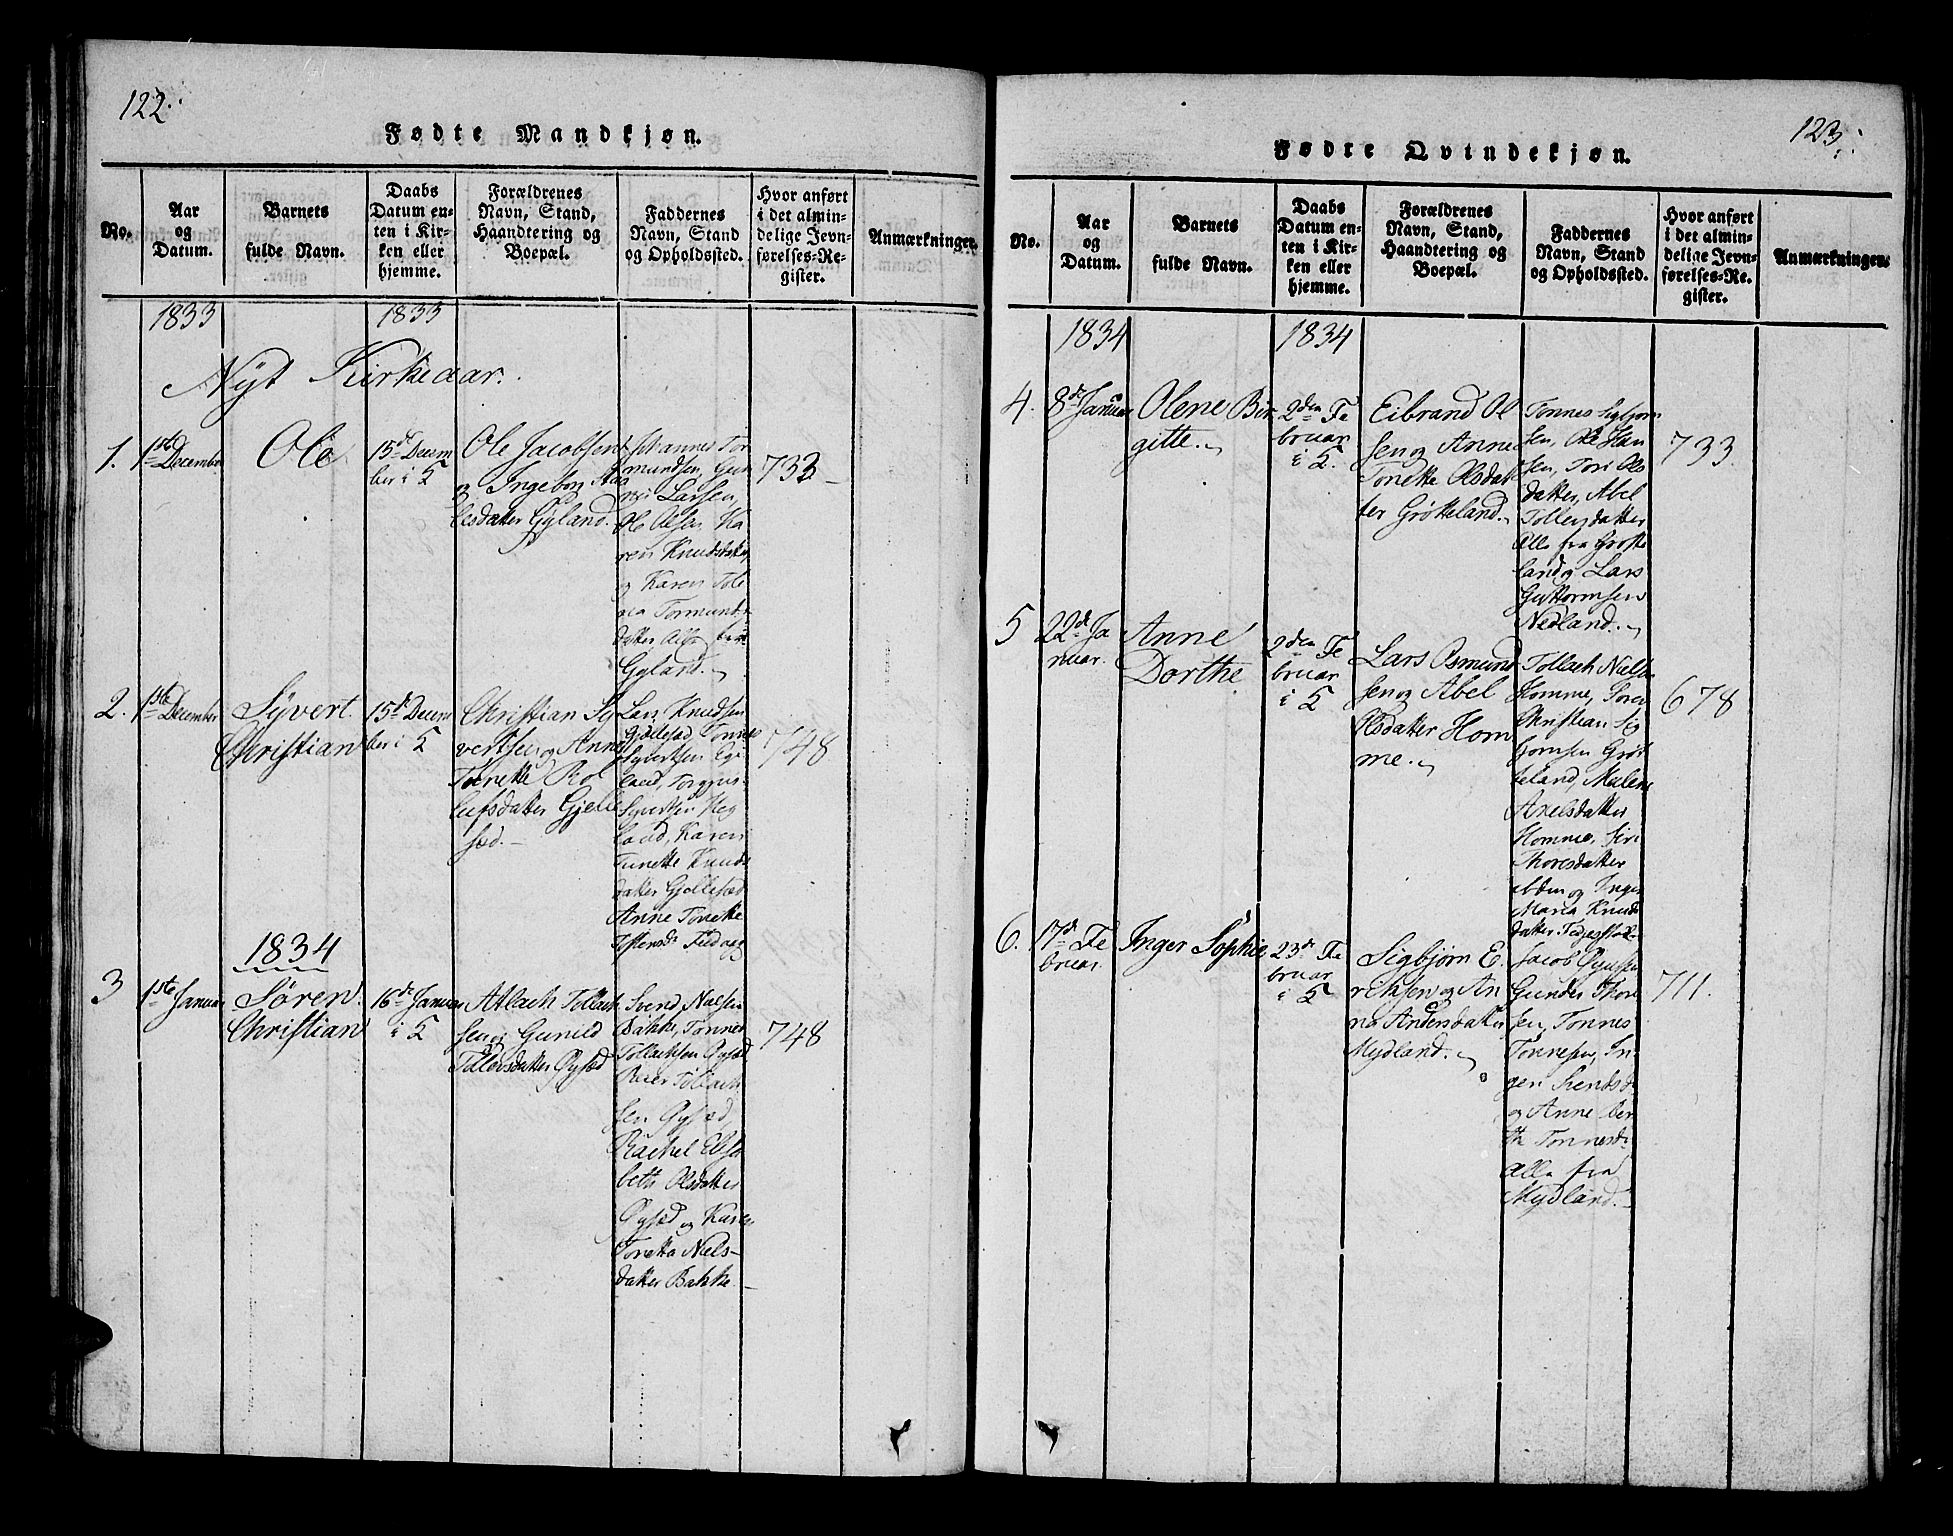 122.
Fødte Mandkjøn.
No.
Aar
og
Datum.
Barnets
fulde Navn.
Daabs
Datum en-
ten i Kir-
ken eller
hjemme.
Forældrenes
Navn, Stand,
Haandtering og
Boepæl.
Faddernes
Navn, Stand
og Opholdssted.
Hvor anført
i det almin-
delige Jevn-
førelses-Re-
gister.
Anmærkninger.
1833
1833
Nyt Kirkeaar.
1.
1ste December
Ole
15de Decem
ber i K
Ole Jacobsen
og Ingebor
lesdatter Gyland.
mundsen, Gun
Larsen,
Ole Olsen, Ka
ren Knudsdatter
og Karen Tole
na Tormunds
datter Alle
Gyland.
733
2.
1ste December
Syvert
Christian
15de Decem
ber i K
Christian Sy
vertsen og Anne
Tonette Ro
lufsdatter Gjelle
sæd.
Lars Knudsen
Gjellesæd, Tønnes
Syvertsen Eg
land, Torgius
Syvertsen Heg
land, Karen
Tonette Knuds
datter Gjellesæd
Anne Tonette
748
1834
3
1ste Januar
Søren
Christian
16de Januar
i K
Atlach Tollach
sen og Gunild
Tollevsdatter Øysæd
Svend Nielsen
Bakke, Tønnes
Tollachsen Øysæd
Reier Tollach
sen Øysæd,
Rachel Elisa
beth Olsdatter
Øysæd og Karen
Tonette Niels-
datter Bakke
748
123.
Fødte Qvindekjøn.
No.
Aar
og
Datum.
Barnets
fulde Navn.
Daabs
Datum en-
ten i Kir-
ken eller
hjemme.
Forældrenes
Navn, Stand,
Haandtering og
Boepæl.
Faddernes
Navn, Stand
og Opholdssted.
Hvor anført
i det almin-
delige Jevn-
førelses-Re-
gister.
Anmærkninger.
1834
1834
4.
8de Januar
Olene Bir
gitte.
2den Fe
bruar
i K.
Eibrand Ol
sen og Anne
Tonette Olsdat
ter Grøtteland.
Tønnes Sigbjørn
sen, Ole Han
sen, Tori Ols
datter, Abel
Tollevsdatter
Alle fra Grøtte
land og Lars
Guttormsen
Nedland.
733.
5
22de Ja
nuar.
Anne
Dorthe
2den Fe
bruar
i K
Lars Osmund
sen og Abel
Olsdatter Hom
me.
Tollach Nielsen
Homme, Søren
Christian Sig
bjornsen Grøt
teland, Malene
Axelsdatter
Homme, Siri
Thoresdatter
ibden og Inger
Maria Knuds
datter
678
6.
17de Fe
bruar.
Inger Sophie
23de Fe
bruar
i K
Sigbjørn E
richsen og An
na Andersdatter
Mydland.
Jacob
Gunder Thore
sen, Tønnes
Tønnesen, In
ger Svendsd.
og Anne Ber
the Tønnesd.
Alle fra
Mydland.
711.